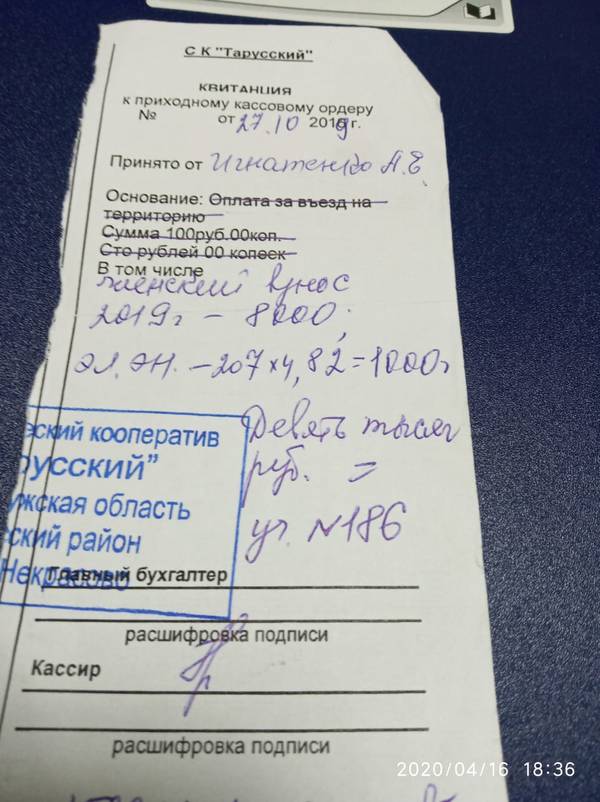 С К "Тарусский"
КВИТАНЦИЯ
к приходному кассовому ордеру
№ от 27.10 2019 г.
Принято от Игнатенко А.Е.
Основание: Оплата за въезд на
территорию
Сумма 100руб.00коп.
Сто рублей 00 копеек
В том числе
членский взнос
2019 г - 8000.
эл. эн. - 207 х 4,82 = 1000
Девять тысяч
руб. =
уч. №186
еский кооператив
русский"
жская область
ский район
Некрасово
Главный бухгалтер
расшифровка подписи
Кассир
расшифровка подписи
2020/04/16 18:36